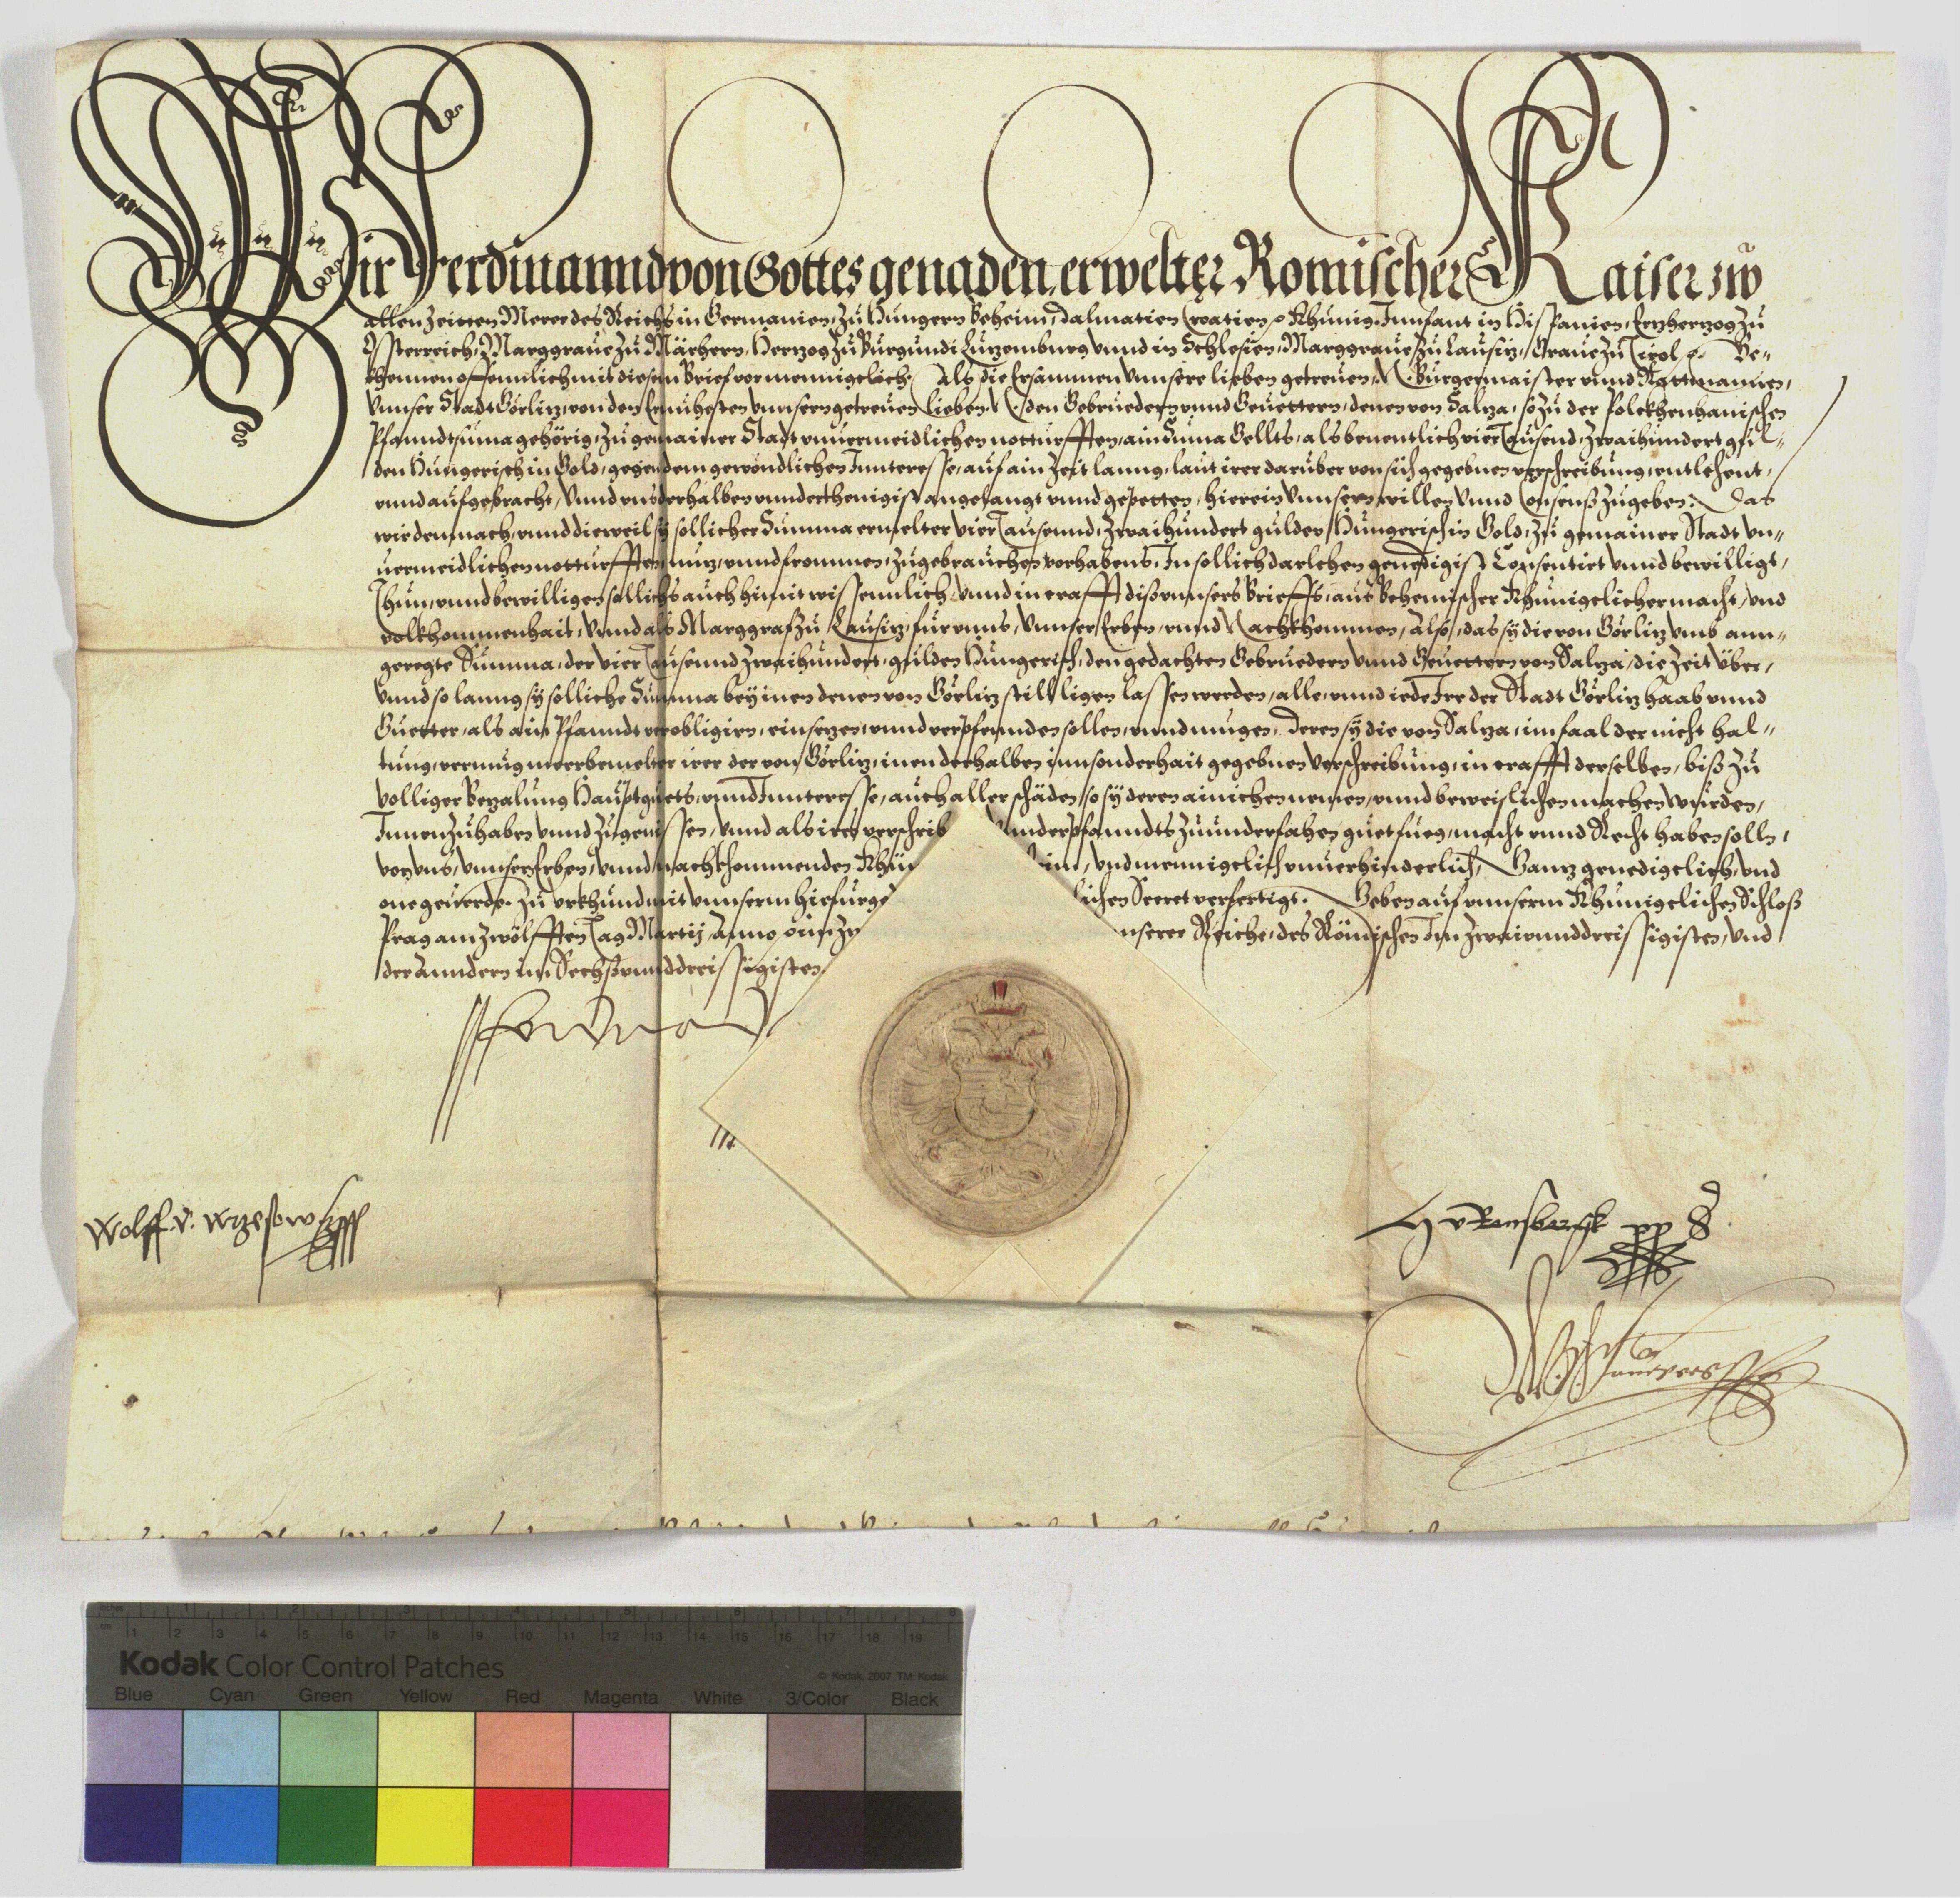 Wir Ferdinannd von Gottes genaden erwelter Romischer Kaiser zw
allen zeitten Merer des Reichs in Germanien, zu Hungern Beheim, Dalmatien Croatien ꝛc Khunig, Innfant in Hispanien, Ertzhertzog zu
Osterreich, Marggraue zu Märhern, Hertzog zu Burgundi Lützemburg vnnd in Schlesien, Marggraue zu Lausitz, Graue zu Tirol ꝛc. Be-
khennen offenntlich mit diesem Brief vor mennigelich. Als die Ersammen vnnsere lieben getreuen, N. Burgermaister vnnd Rattmannen,
vnnser Stadt Görlitz, von den Ernuhesten vnnsern getreuen lieben, N. den Gebruedern vnnd Geuettern, denen von Saltza, so zu der Polckhenhanischen
Pfanndtsuma gehörig, zu gemainer Stadt vnuermeidlichen notturfften, ain Suma Gellts, als benentlich vier Tausend, zwaihundert gul-
den Hungerisch in Gold, gegen dem gewöndlichen Innteresse, auf ain zeit lanng, laut irer daruber von sich gegebnen verschreibung, entlehent,
vnnd aufgebracht, vnnd vns derhalben vnnderthenigist angelangt vnnd gepetten, hierein vnnsern willen vnnd Consenß zugeben. Das
wir demnach, vnnd dieweil sy sollicher Summa ermelter vier Tausennd, zwaihundert gulden Hungerisch in Gold, zu gemainer Stadt vn-
uermeidlichen notturfften nutz, vnnd frommen, zugebrauchen vorhabens, In sollich darlehen genedigist Consentirt vnnd bewilligt,
Thun, vnnd bewilligen sollichs auch hiemit wissenntlich, vnnd in crafft diß vnnsers Brieffs, aus Behemischer Khunigelicher macht, vnd
volkhommenhait, vnnd als Marggraf zu Lausitz, für vnns, vnnser Erben, vnnd Nachkhommen, Also, das sy die von Görlitz vmb ann-
geregte Summa, der vier Tausennd zwaihundert, gulden Hungerisch, den gedachten Gebruedern vnnd Geuettern von Saltza, die zeit über,
vnnd so lanng sy solliche Summa bey inen denen von Görlitz still ligen lassen werden, alle, vnnd iede Ire der Stadt Görlitz haab vnnd
Guetter, als ain Pfanndt verobligirn, einsetzen, vnnd verpfennden sollen, vnnd mugen, Deren sy die von Saltza, im faal der nicht hal-
tung, vermug meerbemelter irer der von Görlitz, inen derhalben innsonderhait gegebnen verschreibung, in crafft derselben, biß zu
volliger Betzalung Hauptguets, vnnd Innteresse, auch aller schäden, so sy deren ainichen nemen, vnnd beweislichen machen wurden,
Innen zuhaben vnnd zugeniessen, vnnd als ires verschrib nnderpfanndts zuunderfahen guet fueg, macht vnnd Recht haben sollen,
von vns, vnnsern Erben, vnnd nachkhommenden Khün eim, vnd mennigelich vnuerhinderlich, Gantz genediglich, vnd
one geuerde. Zu vrkhund mit vnnserm hiefürge lichen Secret verfertigt. Geben auf vnnserm Khunigelichen Schloß
Prag am zwölfften Tag Martij Anno ꝛc im zw nserer Reiche, des Römischen Im zwaivnnddreissigisten, vnd
der Anndern im Sechßvnnddreissigisten.
Ferdinand
Wolff. v. Wrzesowitz
Kodak Color Control Patches
© Kodak, 2007 TM: Kodak
Blue Cyan Green Yellow Red Magenta White 3/Color Black